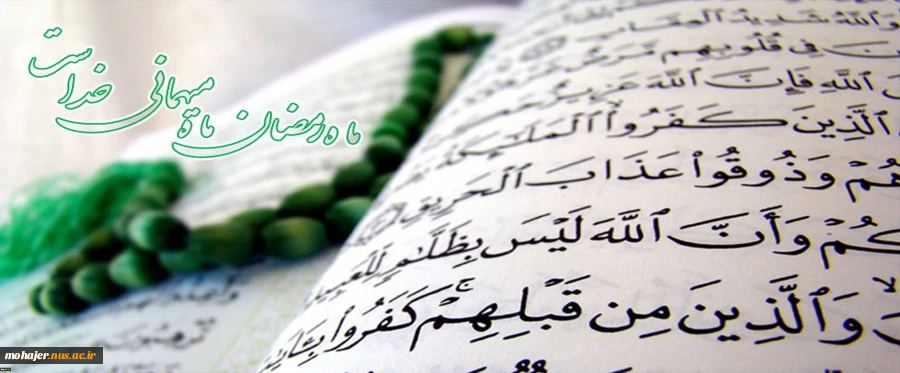 ماه رمضان ماه میهمانی خداست
وَٱللَّهُ شَدِيدُ ٱلْعِقَابِ
فِي قُلُوبِهِم مَّرَضٌ
ٱللَّهِ فَإِنَّ ٱللَّهَ عَزِيزٌ
ٱلَّذِينَ كَفَرُوا۟ ٱلْمَلَٰٓئِكَةُ
هُمْ وَذُوقُوا۟ عَذَابَ ٱلْحَرِيقِ
كُمْ وَأَنَّ ٱللَّهَ لَيْسَ بِظَلَّٰمٍ لِّلْعَبِيدِ
وَٱلَّذِينَ مِن قَبْلِهِمْ كَفَرُوا۟ بِـَٔايَٰ
mohajer.nus.ac.ir